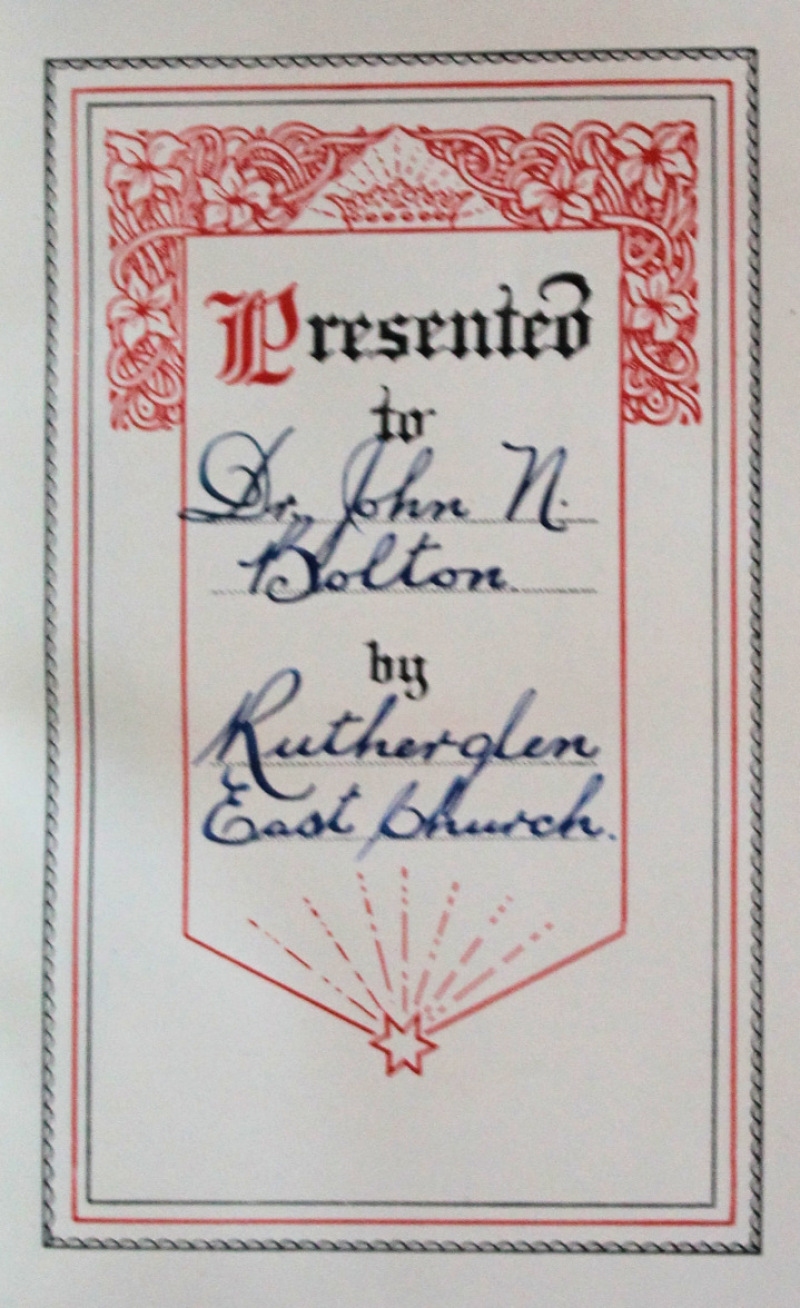 Presented
to
Dr. John N.
Bolton.
by
Rutherglen
East Church.